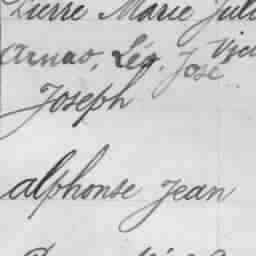 Pierre Marie Jule
Arnao, Léo, José Vict
Joseph
alphonse Jean